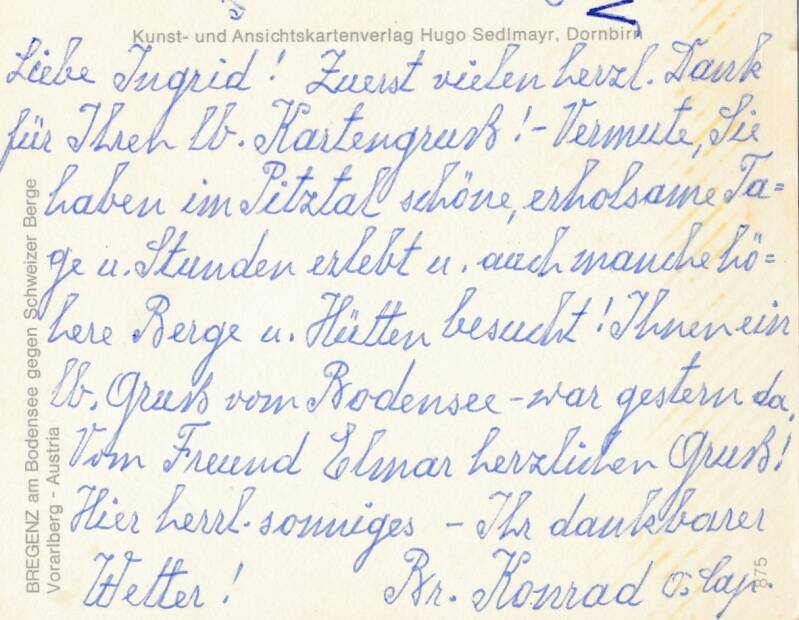 Kunst- und Ansichtskartenverlag Hugo Sedlmayr, Dornbirn
Liebe Ingrid! Zuerst vielen herzl. Dank
für Ihren lb. Kartengruß! - Vermute, Sie
haben im Pitztal schöne, erholsame Ta=
ge u. Stunden erlebt u. auch manche hö=
here Berge u. Hütten besucht! Ihnen ein
lb. Gruß vom Bodensee - war gestern da.
Vom Freund Elmar herzlichen Gruß!
Hier herrl. sonniges - Ihr dankbarer
Wetter! Br. Konrad O. Cap.
BREGENZ am Bodensee gegen Schweizer Berge
Vorarlberg - Austria
875